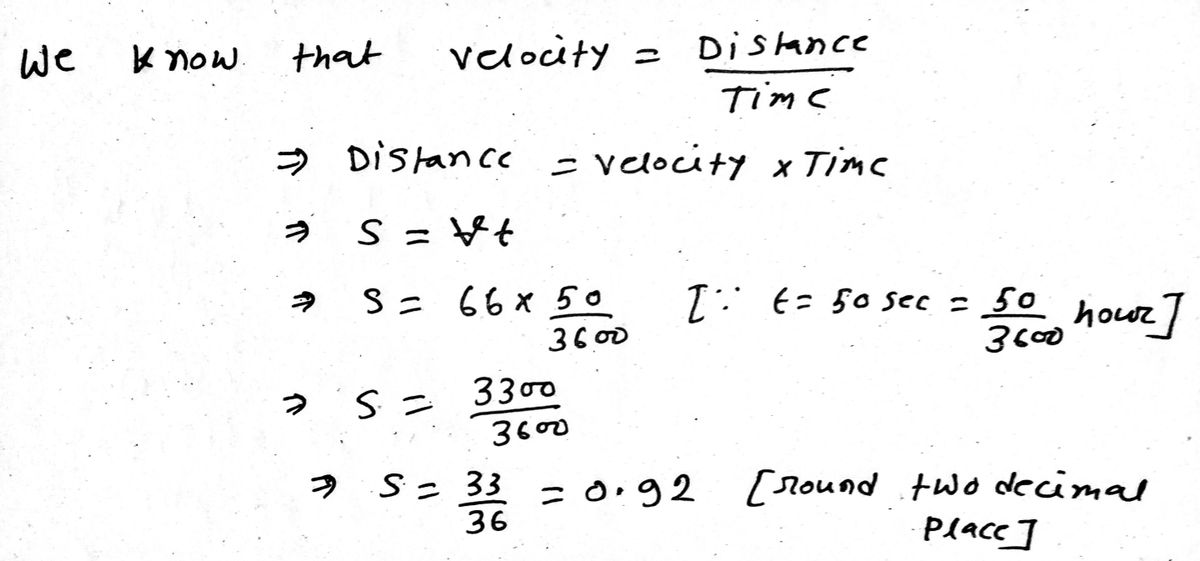 We know that velocity = Distance / Time
⇒ Distance = velocity x Time
⇒ S = vt
⇒ S = 66 x 50/3600 [∵ t = 50 sec = 50/3600 hour]
⇒ S = 3300/3600
⇒ S = 33/36 = 0.92 [round two decimal
Place]